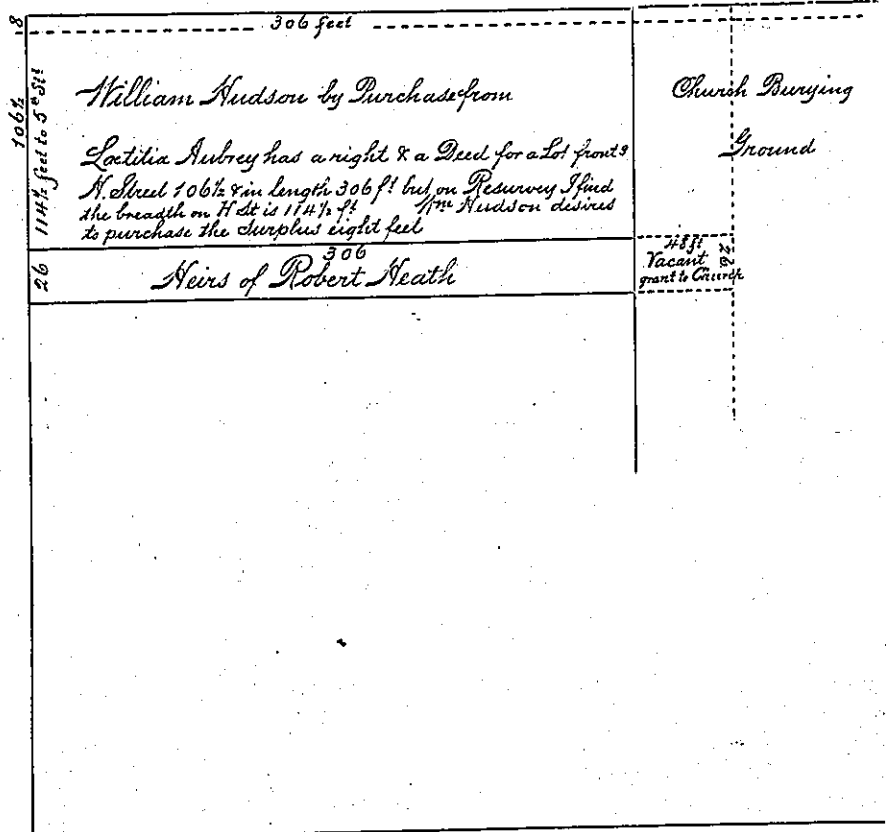 306 feet
8
106½
114½ feet to 5th St
William Hudson by Purchase from
Lœtitia Aubrey has a right & a Deed for a Lot front g
H. Street 106½ & in length 306 ft but on Resurvey I find
the breadth on H St is 114½ ft Wm Hudson desires
to purchase the Surplus eight feet
Church Burying
Ground
26
306
Heirs of Robert Heath
48 ft
Vacant
grant to Church